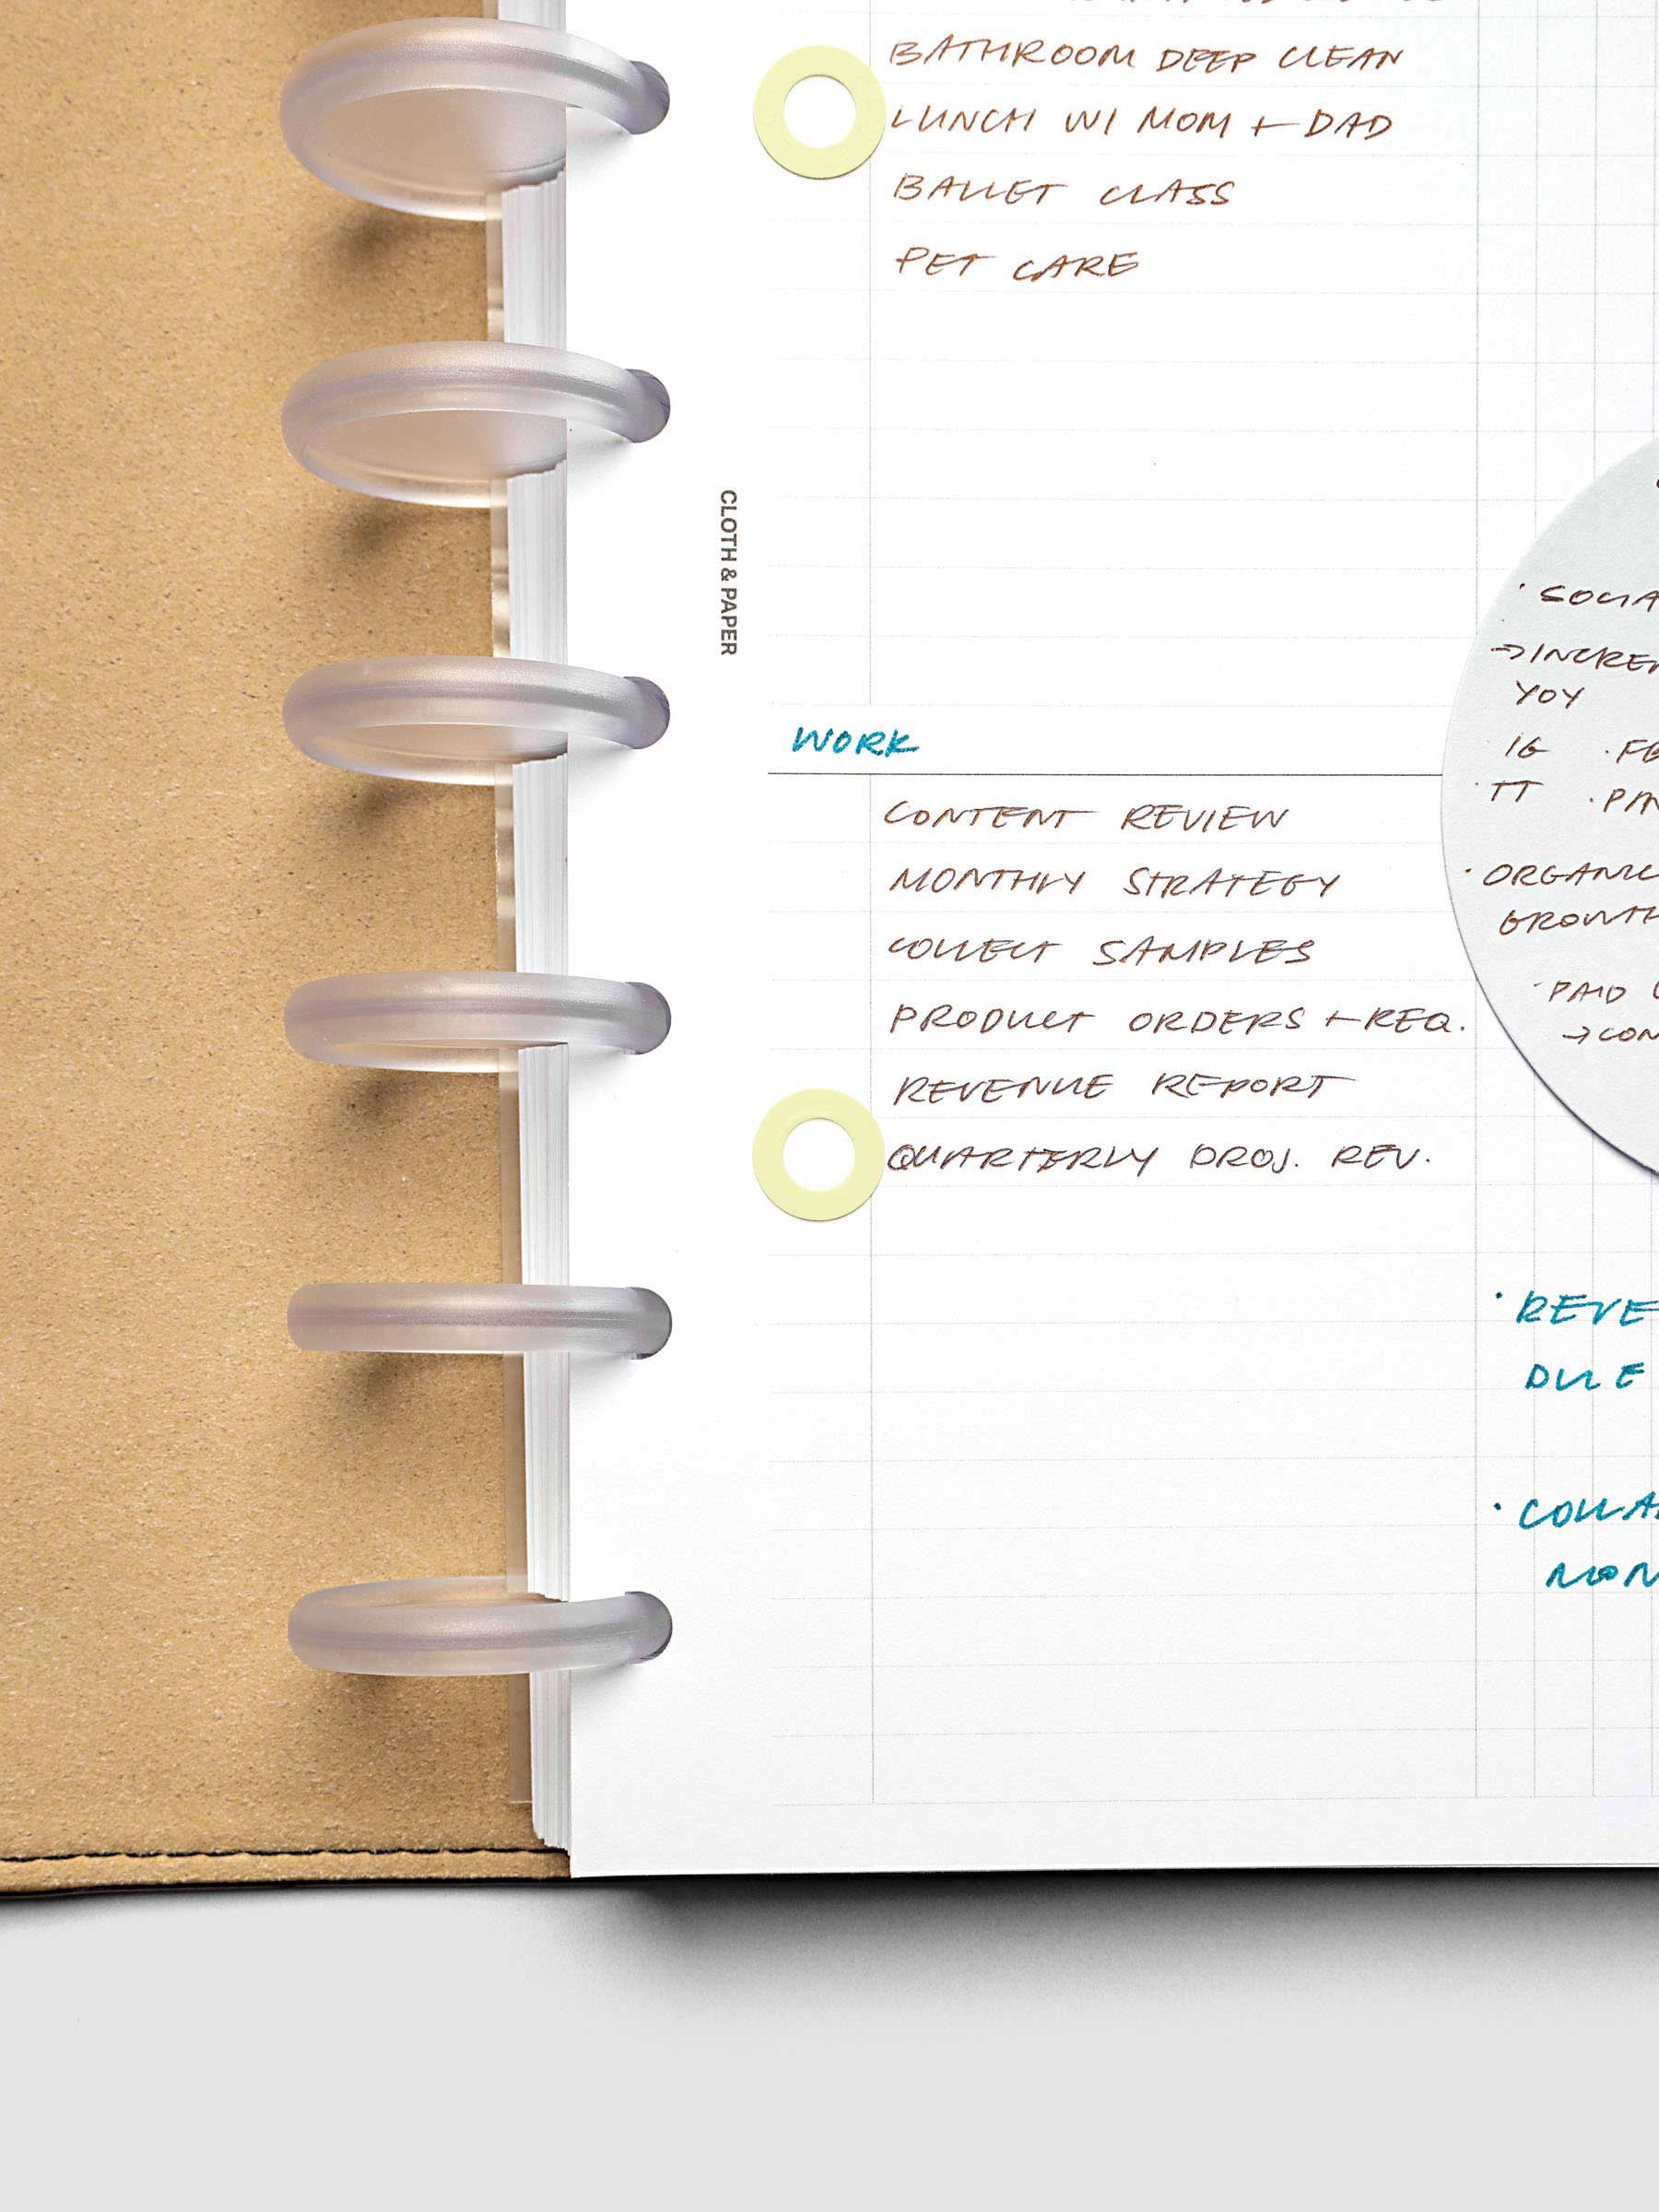 BATHROOM DEEP CLEAN
LUNCH W/ MOM + DAD
BALLET CLASS
PET CARE
CLOTH & PAPER
WORK
CONTENT REVIEW
MONTHLY STRATEGY
COLLECT SAMPLES
PRODUCT ORDERS + REQ.
REVENUE REPORT
QUARTERLY PROJ. REV.
YOY
IG
TT
· ORGANIC
GROWTH
· PAID
DUE